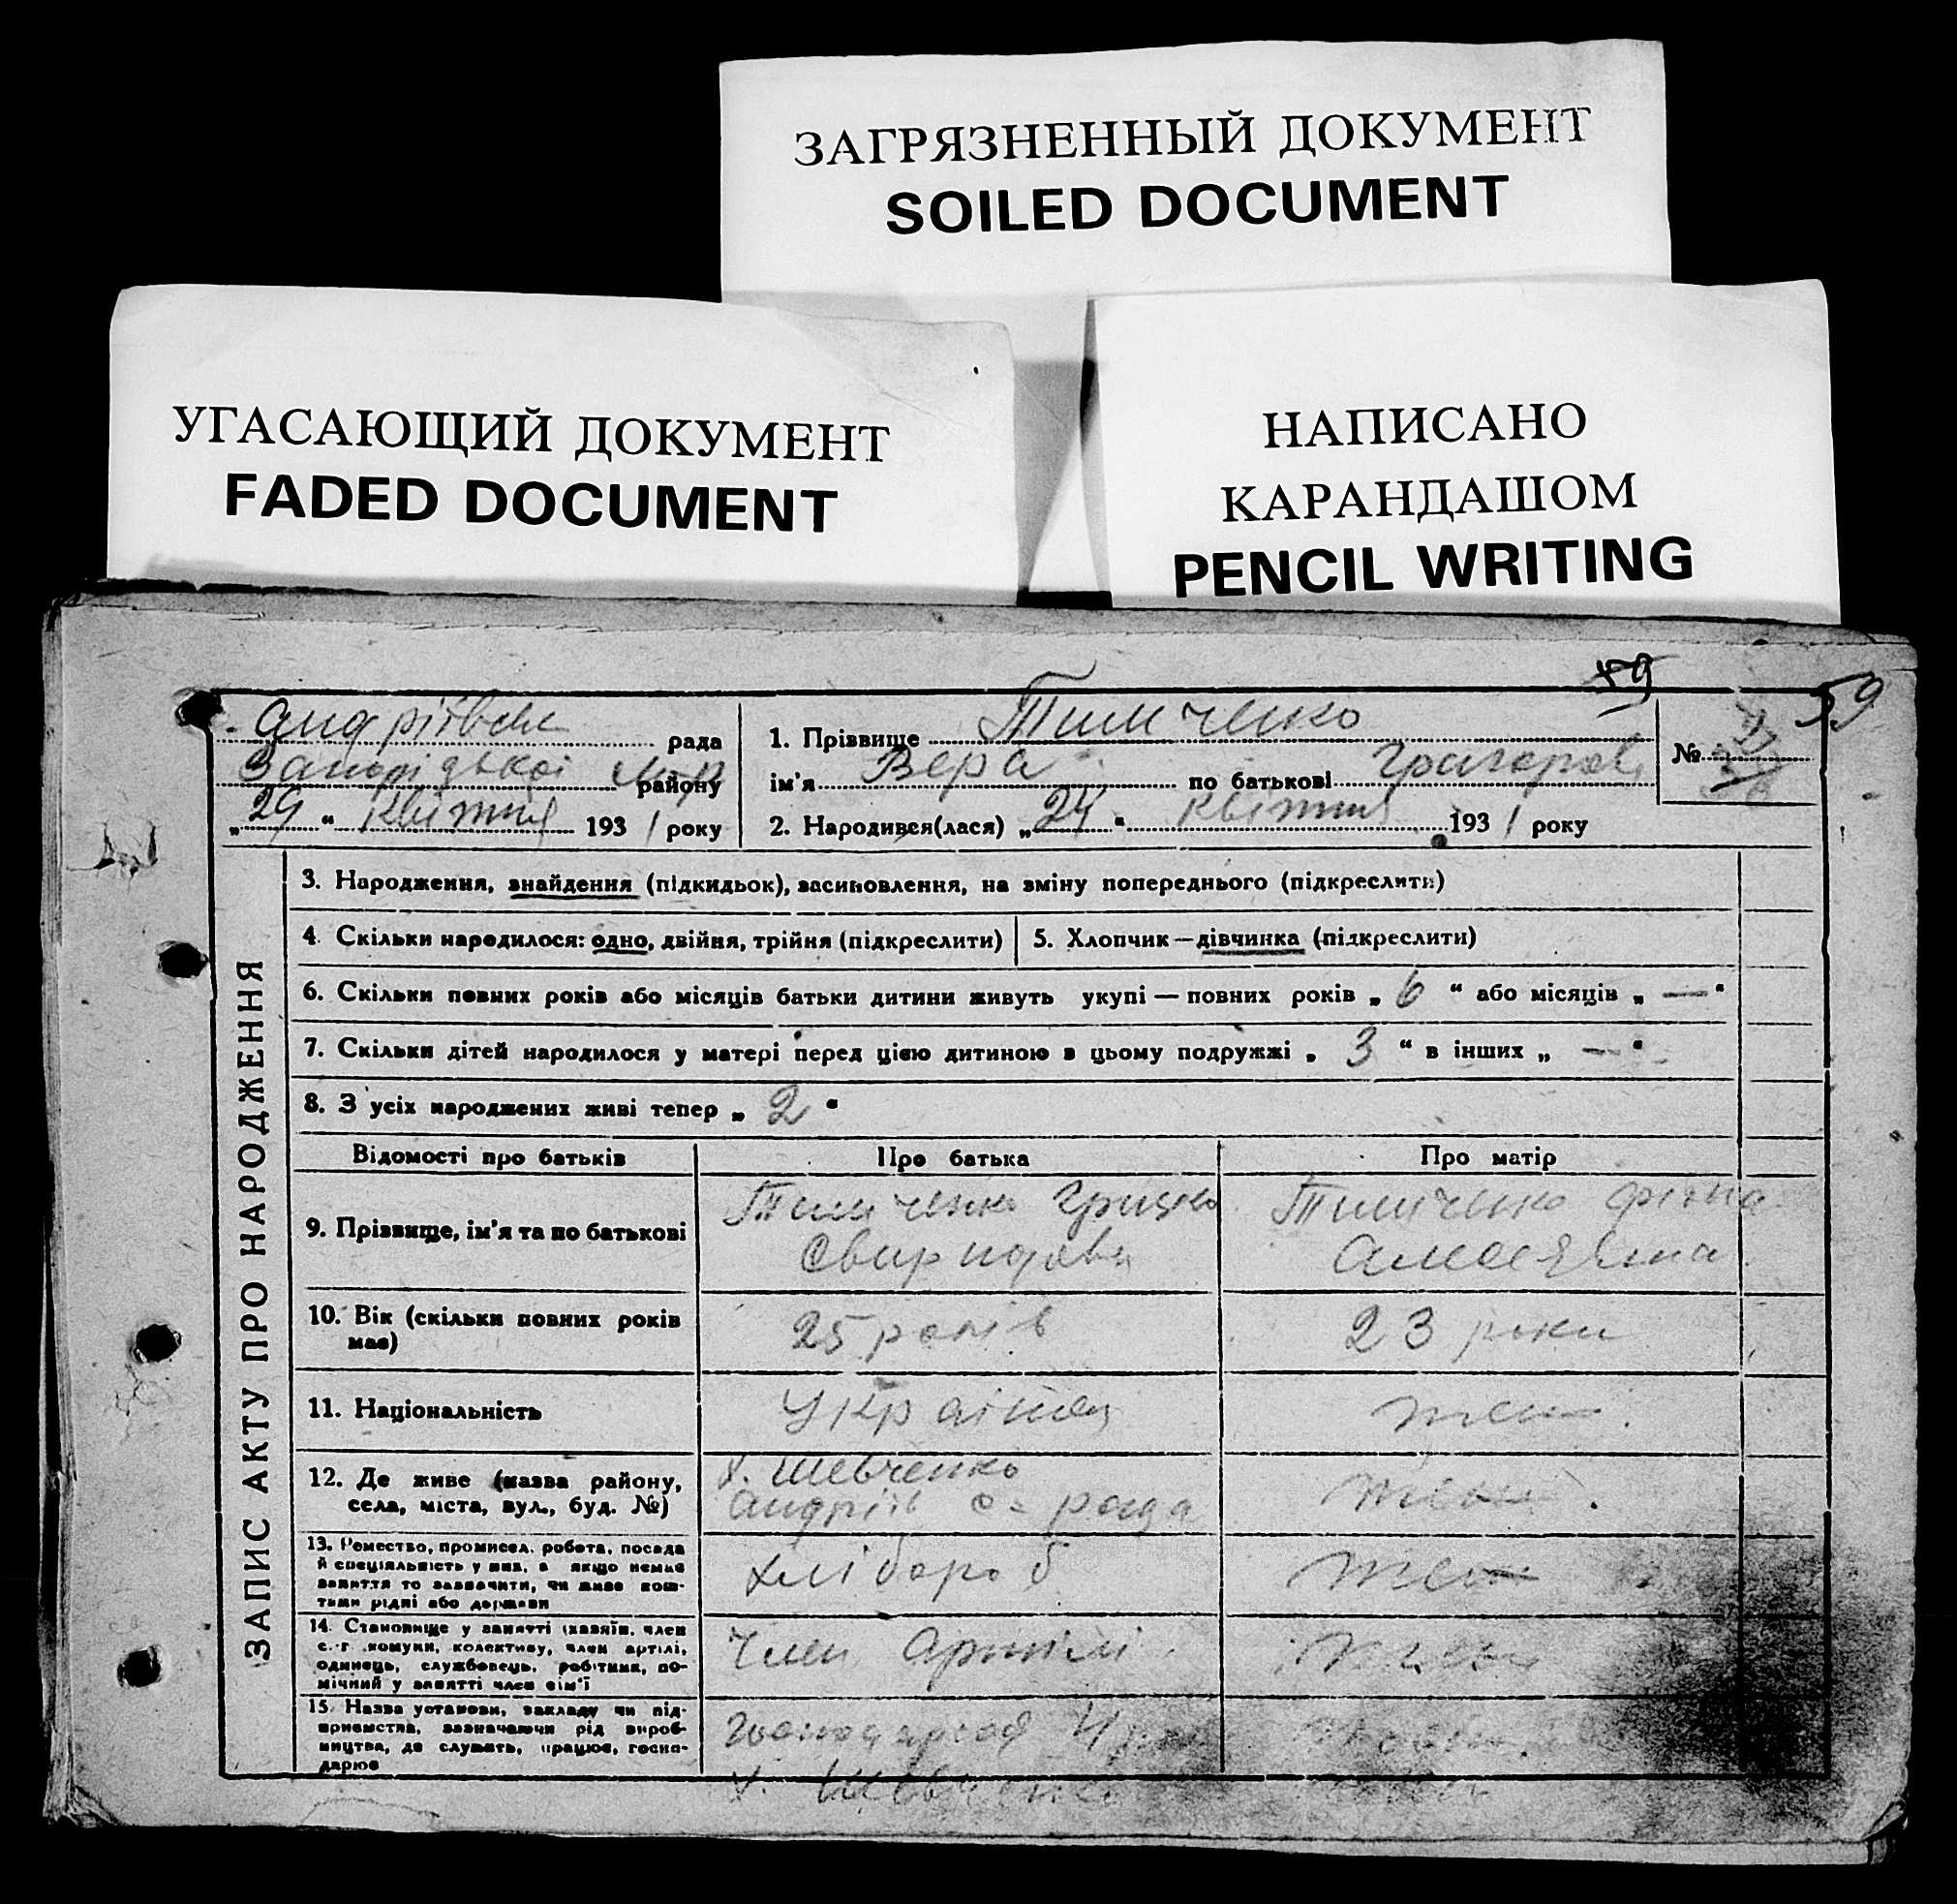 ЗАГРЯЗНЕННЫЙ ДОКУМЕНТ
SOILED DOCUMENT
УГАСАЮЩИЙ ДОКУМЕНТ
FADED DOCUMENT
НАПИСАНО
КАРАНДАШОМ
PENCIL WRITING
59
59
Андріївськ рада
Запорізької району
„29“ квітня 1931 року
1. Прізвище Тимченко
ім'я Вера по батькові Григоров
№
2. Народився(лася) „24“ квітня 1931 року
ЗАПИС АКТУ ПРО НАРОДЖЕННЯ
3. Народження, знайдення (підкидьок), засиновлення, на зміну попереднього (підкреслити)
4. Скільки народилося: одно, двійня, трійня (підкреслити)
5. Хлопчик — дівчинка (підкреслити)
6. Скільки повних років або місяців батьки дитини живуть укупі — повних років „6“ або місяців „—“
7. Скільки дітей народилося у матері перед цією дитиною в цьому подружжі „3“ в інших „—“
8. З усіх народжених живі тепер „2“
Відомості про батьків Про батька Про матір
9. Прізвище, ім'я та по батькові
Тимченко Грицко
Свиридови
Тимченко
10. Вік (скільки повних років
має)
25 років
23 роки
11. Національність
Українец
12. Де живе (назва району,
села, міста, вул., буд. №)
х. Шевченко
Андріїв с. рада
13. Ремество, промисел, робота, посада
й спеціяльність у них, а якщо немає
заняття то зазначити, чи живе кош-
тами рідні або держави
хлібороб
14. Становище у занятті (хазяїн, член
с.-г. комуни, колективу, член артілі,
одинець, службовець, робітник, по-
мічний у занятті член сім'ї
Член Артілі
15. Назва установи, закладу чи під-
приємства, зазначаючи рід вироб-
ництва, де служить, працює, госпо-
дарює
х. Шевченко